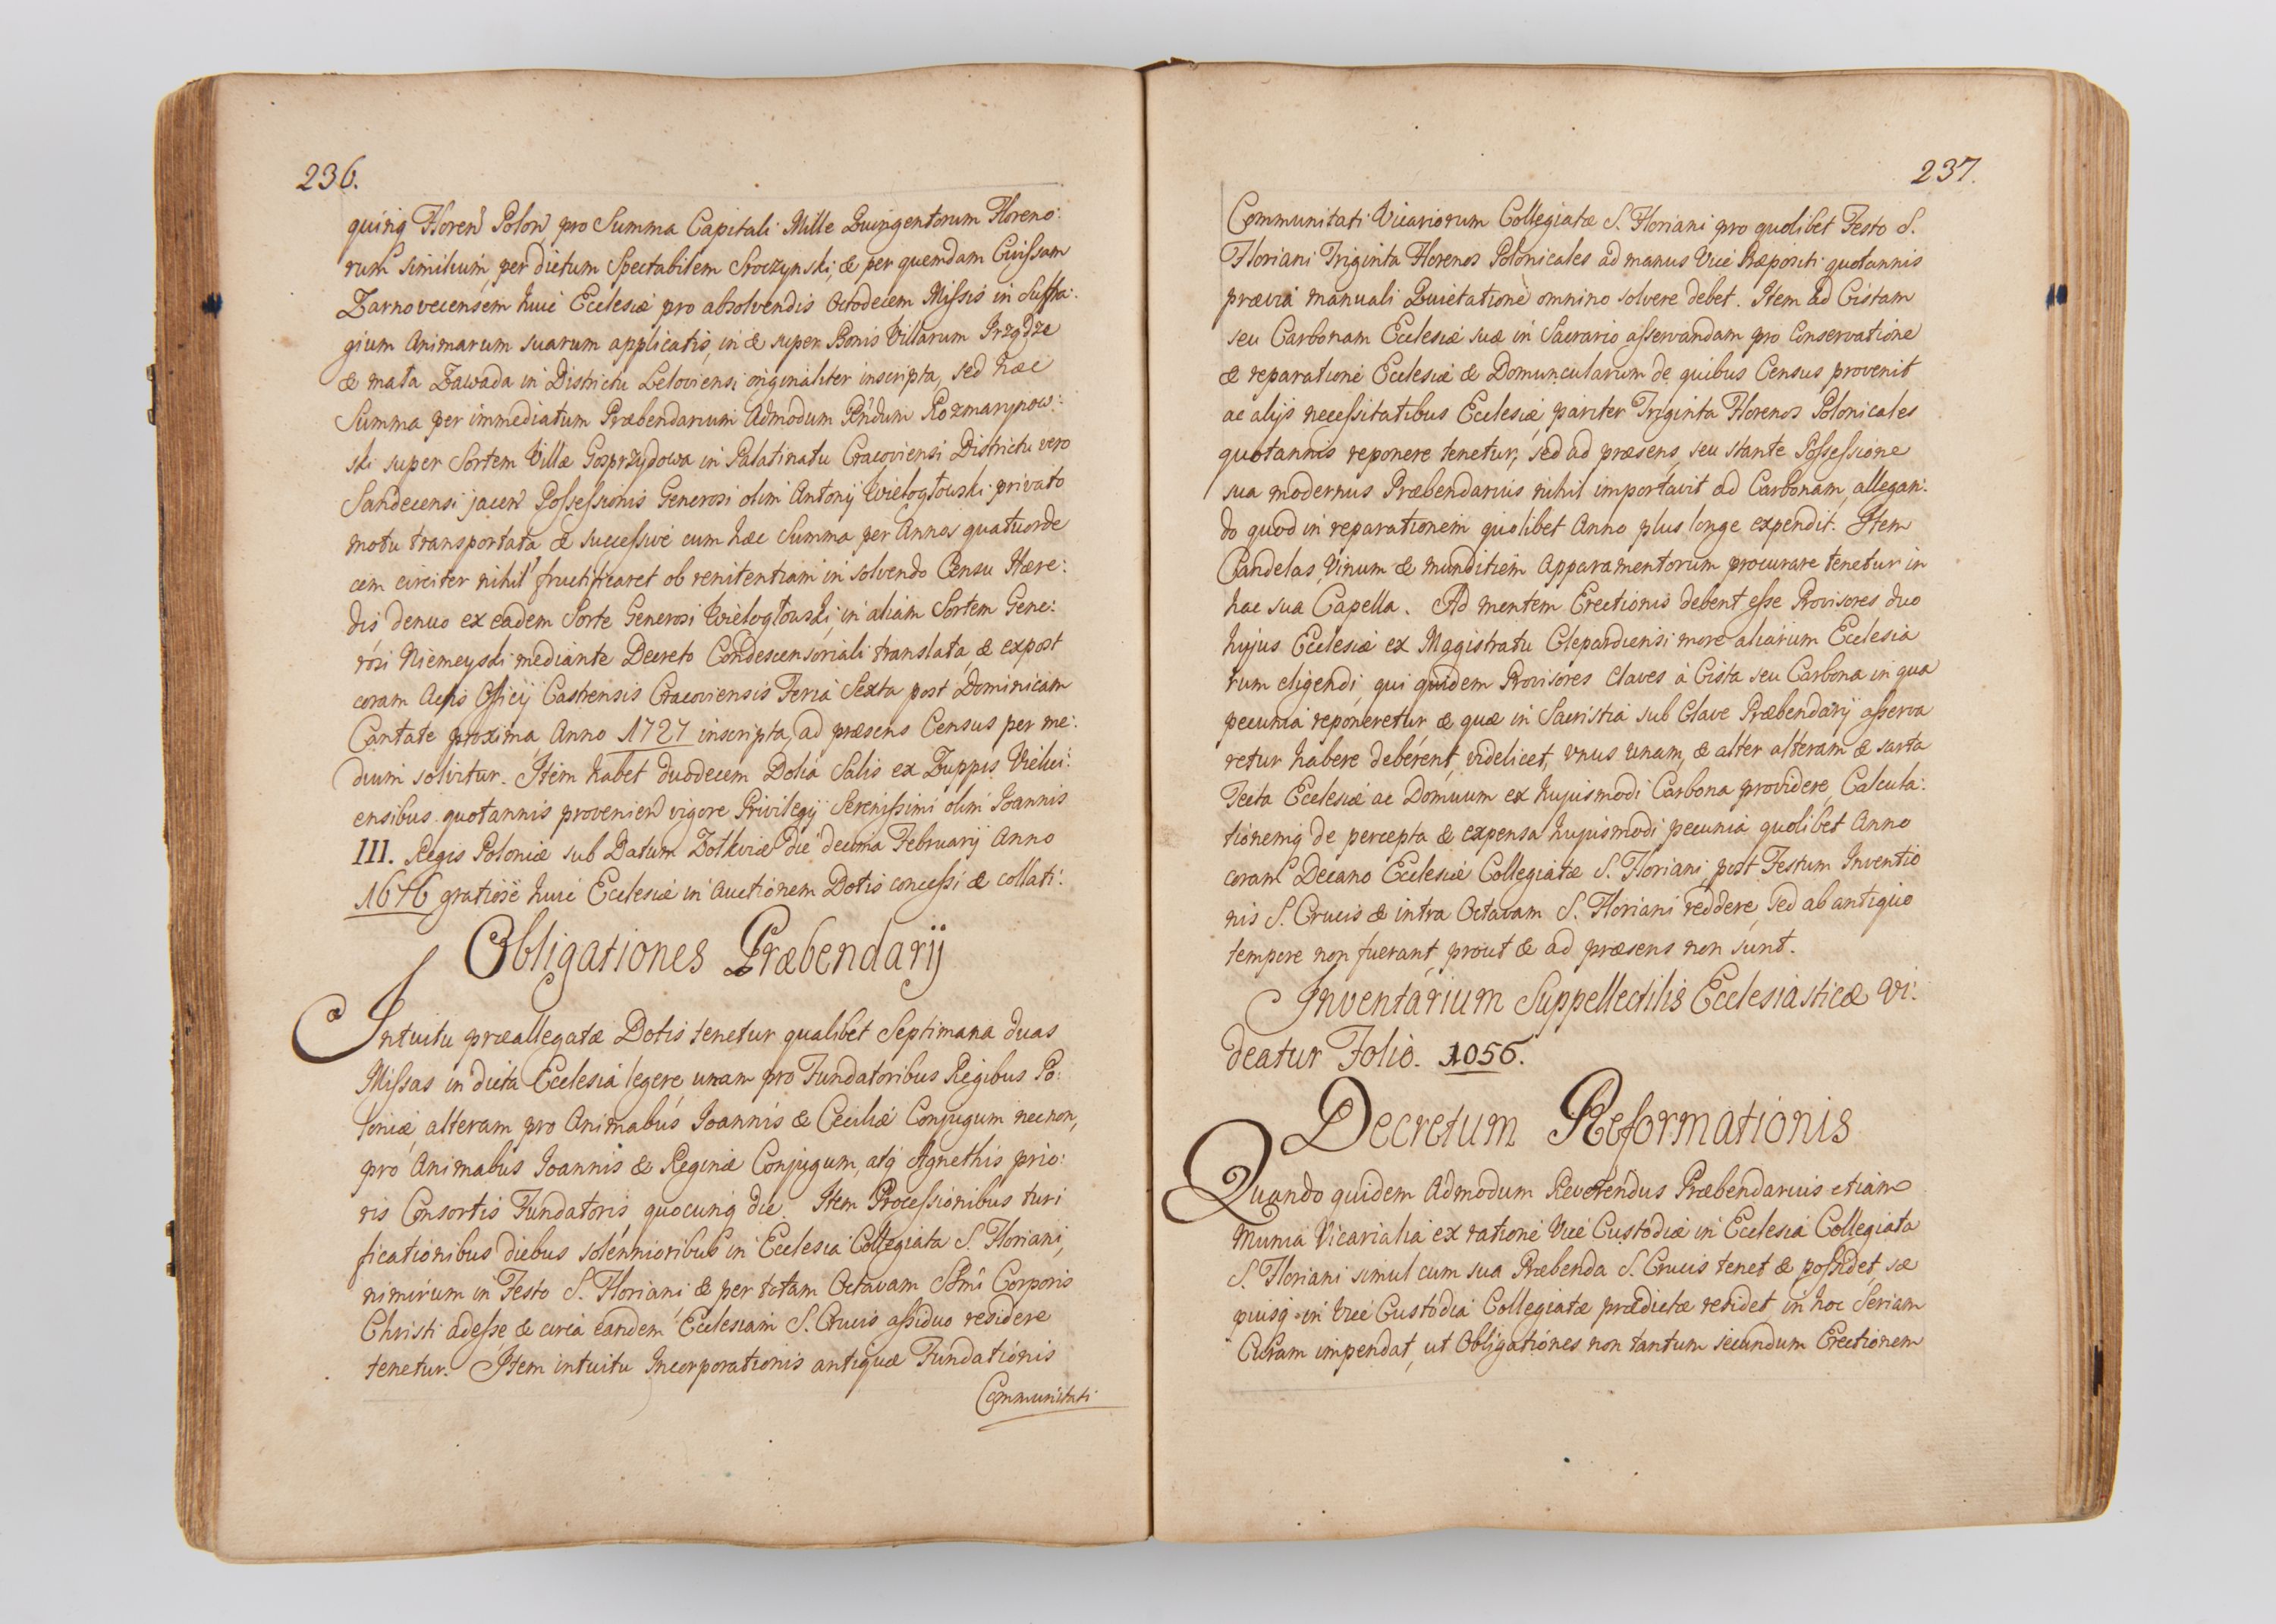 236.
quinq Floren Polon pro Summa Capitali Mille Quingentorum Floreno:
rum similium, per dictum Spectabilem Stoczynski, & per quemdam Civissam
Zarnovecensem huic Ecclesiæ pro absolvendis Octodecem Missis in Suffra:
gium Animarum suarum applicatis, in & super Bonis Villarum Irządze
& mała Zawada in Districtu Leloviensi originaliter inscripta, sed hæc
Summa per immediatum Præbendarium Admodum Rndum Rozmarynow:
ski super Sortem Villæ Gosprzydowa in Palatinatu Cracoviensi Districtu vero
Sandecensi jacen Possessionis Generosi olim Antonij Wielogłowski privato
motu transportata & successive cum hæc Summa per Annos quatuorde
cem circiter nihil fructificaret ob renitentiam in solvendo Censu Hære:
dis denuo ex eadem Sorte Generosi Wielogłowski, in aliam Sortem Gene:
rosi Niemeyski mediante Decreto Condescensoriali translata, & expost
coram Actis Officij Castrensis Cracoviensis Feria Sexta post Dominicam
Cantate proxima Anno 1727 inscripta, ad præsens Census per me:
dium solvitur. Item habet duodecem Dolia Salis ex Zuppis Vielici:
ensibus quotannis provenien vigore Privilegij Serenissimi olim Ioannis
III. Regis Poloniæ sub Datum Zołkwiæ die decima Februarij Anno
1676 gratiose huic Ecclesiæ in Auctionem Dotis concessi & collati.
Obligationes Præbendarij
Intuitu præallegatæ Dotis tenetur qualibet Septimana duas
Missas in dicta Ecclesia legere unam pro Fundatoribus Regibus Po:
loniæ, alteram pro Animabus Ioannis & Ceciliæ Conjugum necnon,
pro Animabus Ioannis & Reginæ Conjugum, atq Agnethis prio:
ris Consortis Fundatoris, quocunq die. Item Processionibus turi
ficationibus diebus solennioribus in Ecclesia Collegiata S. Floriani,
nimirum in Festo S. Floriani & per totam Octavam SSmi Corporis
Christi adesse, & circa eandem Ecclesiam S. Crucis assiduo residere
tenetur. Item intuitu Incorporationis antiquæ Fundationis
Communitati
237.
Communitati Vicariorum Collegiatæ S. Floriani pro quolibet Festo S.
Floriani Triginta Florenos Polonicales ad manus Vice Præpositi quotannis
prævia manuali Quietatione omnino solvere debet. Item ad Cistam
seu Carbonam Ecclesiæ suæ in Sacrario asservandam pro Conservatione
& reparatione Ecclesiæ & Domuncularum de quibus Census provenit
ac alijs necessitatibus Ecclesiæ, pariter Triginta Florenos Polonicales
quotannis reponere tenetur, sed ad præsens, seu stante Possessione
sua modernus Præbendarius nihil importavit ad Carbonam, allegan:
do quod in reparationem quolibet Anno plus longe expendit. Item
Candelas, Vinum & munditiem Apparamentorum procurare tenetur in
hac sua Capella. Ad mentem Erectionis debent esse Provisores duo
hujus Ecclesiæ ex Magistratu Clepardiensi more aliarum Ecclesia
rum eligendi, qui quidem Provisores Claves à Cista seu Carbona in qua
pecunia reponeretur, & quæ in Sacristia sub Clave Præbendarij asserva
retur habere deberent, videlicet, vnus unam, & alter alteram & sarta
Tecta Ecclesiæ ac Domuum ex hujusmodi Carbona providere, Calcula:
tionemq de percepta & expensa hujusmodi pecunia quolibet Anno
coram Decano Ecclesiæ Collegiatæ S. Floriani, post Festum Inventio
nis S. Crucis & intra Octavam S. Floriani reddere, sed ab antiquo
tempore non fuerant, prout & ad præsens non sunt.
Inventarium Suppellectilis Ecclesiasticæ Vi:
deatur Folio. 1056.
Decretum Reformationis
Quando quidem Admodum Reverendus Præbendarius etiam
Munia Vicarialia ex ratione Vice Custodiæ in Ecclesia Collegiata
S. Floriani simul cum sua Præbenda S. Crucis tenet & possidet, sæ
piusq in Vice Custodia Collegiatæ prædictæ residet, in hoc Seriam
Curam impendat, ut Obligationes non tantum secundum Erectionem